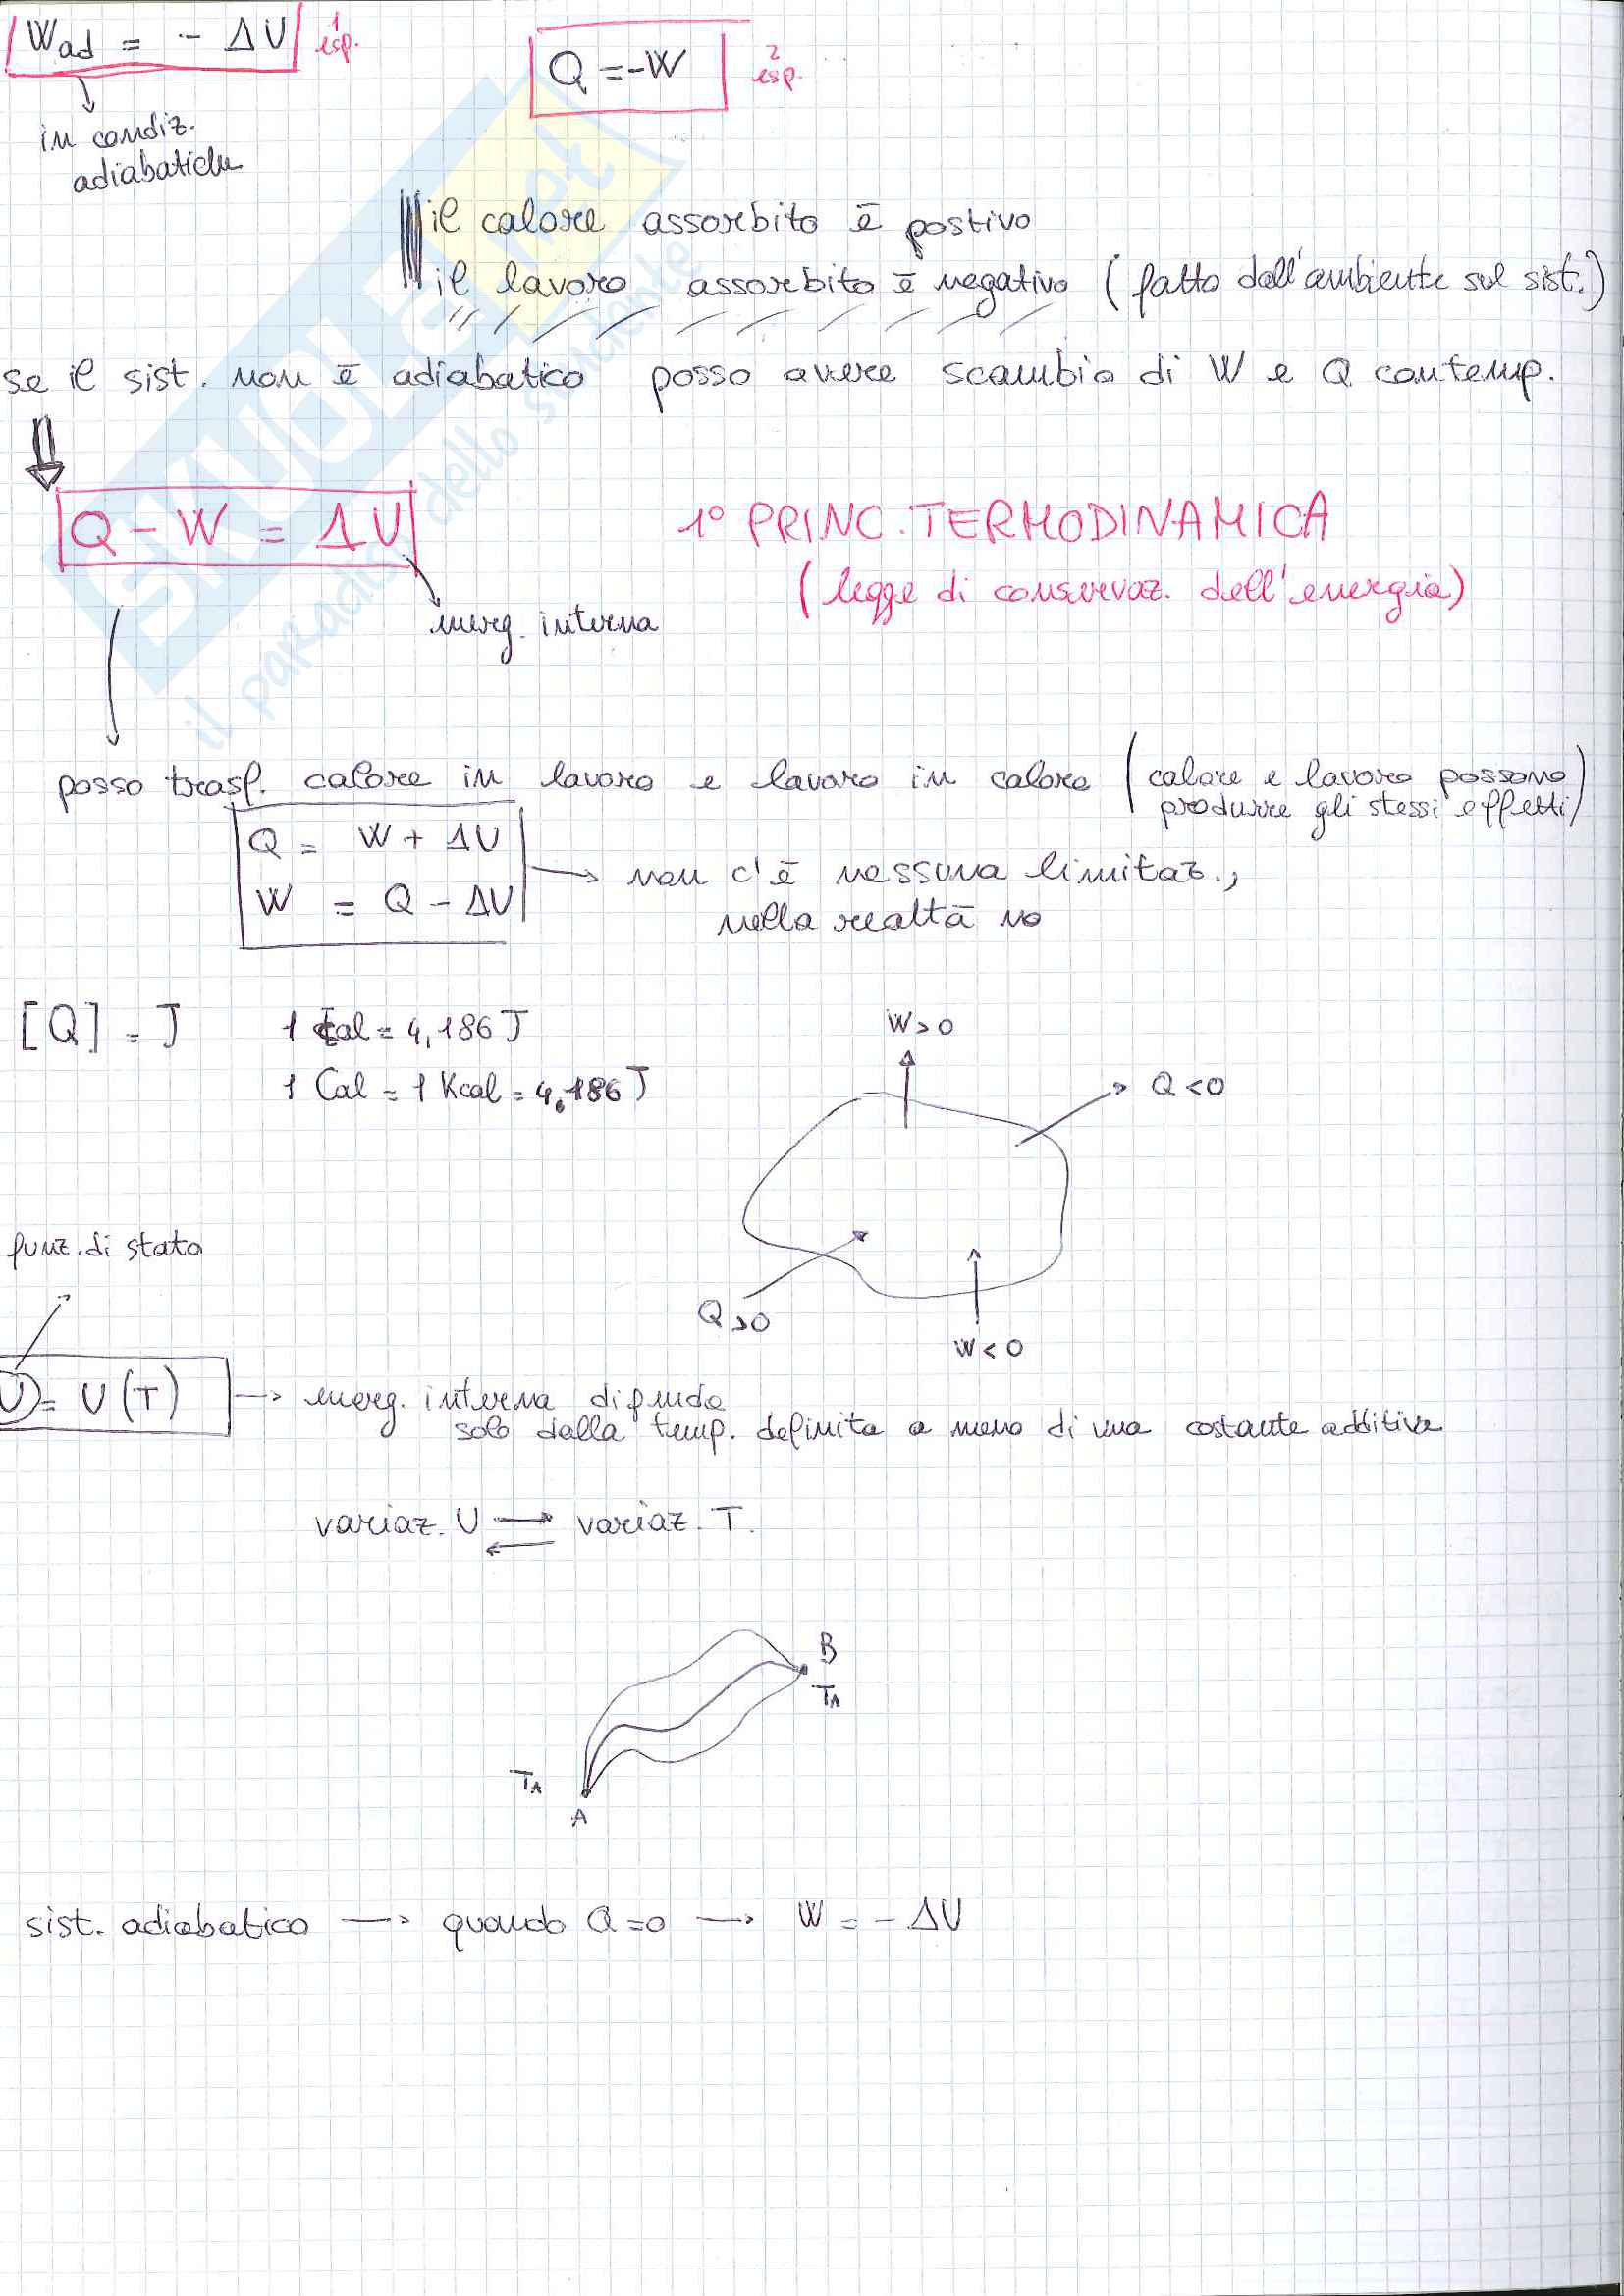 Wad = - ΔU 1 esp.
Q = -W 2 esp.
in condiz.
adiabatiche
il calore assorbito è postivo
il lavoro assorbito è negativo (fatto dall'ambiente sul sist.)
se il sist. non è adiabatico posso avere scambio di W e Q contemp.
Q - W = ΔU 1° PRINC. TERMODINAMICA
(legge di conservaz. dell'energia)
energ. interna
posso trasf. calore in lavoro e lavoro in calore (calore e lavoro possono
produrre gli stessi effetti)
Q = W + ΔU
W = Q - ΔU
non c'è nessuna limitaz.,
nella realtà no
[Q] = J 1 cal = 4,186 J
1 Cal = 1 Kcal = 4.186 J
W > 0
Q < 0
Q > 0
W < 0
funz. di stato
U = U(T) → energ. interna dipende
solo dalla temp. definita a meno di una costante additiva
variaz. U ⇄ variaz. T.
B
TA
TA
A
sist. adiabatico → quando Q = 0 → W = - ΔU
SKUOLA.net
il paradiso dello studente